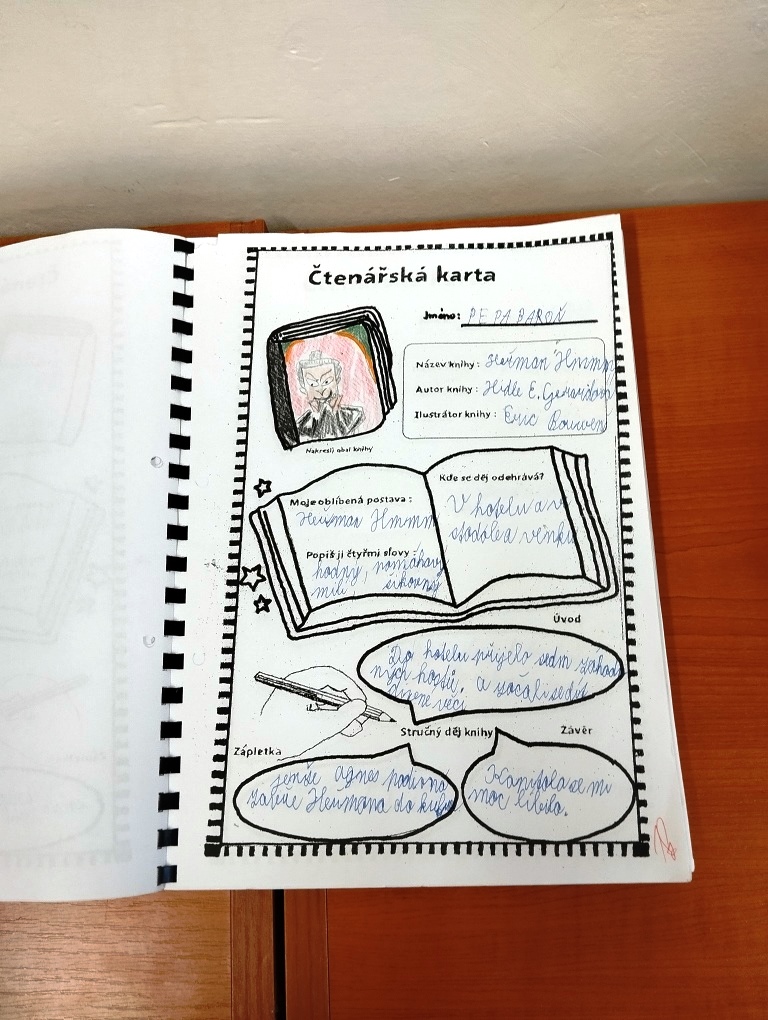 Čtenářská karta
Jméno: PEPA BAROŇ
Název knihy: Heřman
Autor knihy: Hidle E. Gerardova
Ilustrátor knihy: Eric Bouwen
Nakresli obal knihy
Moje oblíbená postava:
Heřman
Popiš ji čtyřmi slovy:
hodný, pomáhavý
milí, šikovný
Kde se děj odehrává?
V hotelu a v
stodole a venku
Úvod
Do hotelu přijelo sedm záhad
ných hostů, a začali se dít
divné věci
Stručný děj knihy
Zápletka
jenže Agnes podivno
zavře Heřmana do kufru
Závěr
Kapitola se mi
moc líbila.